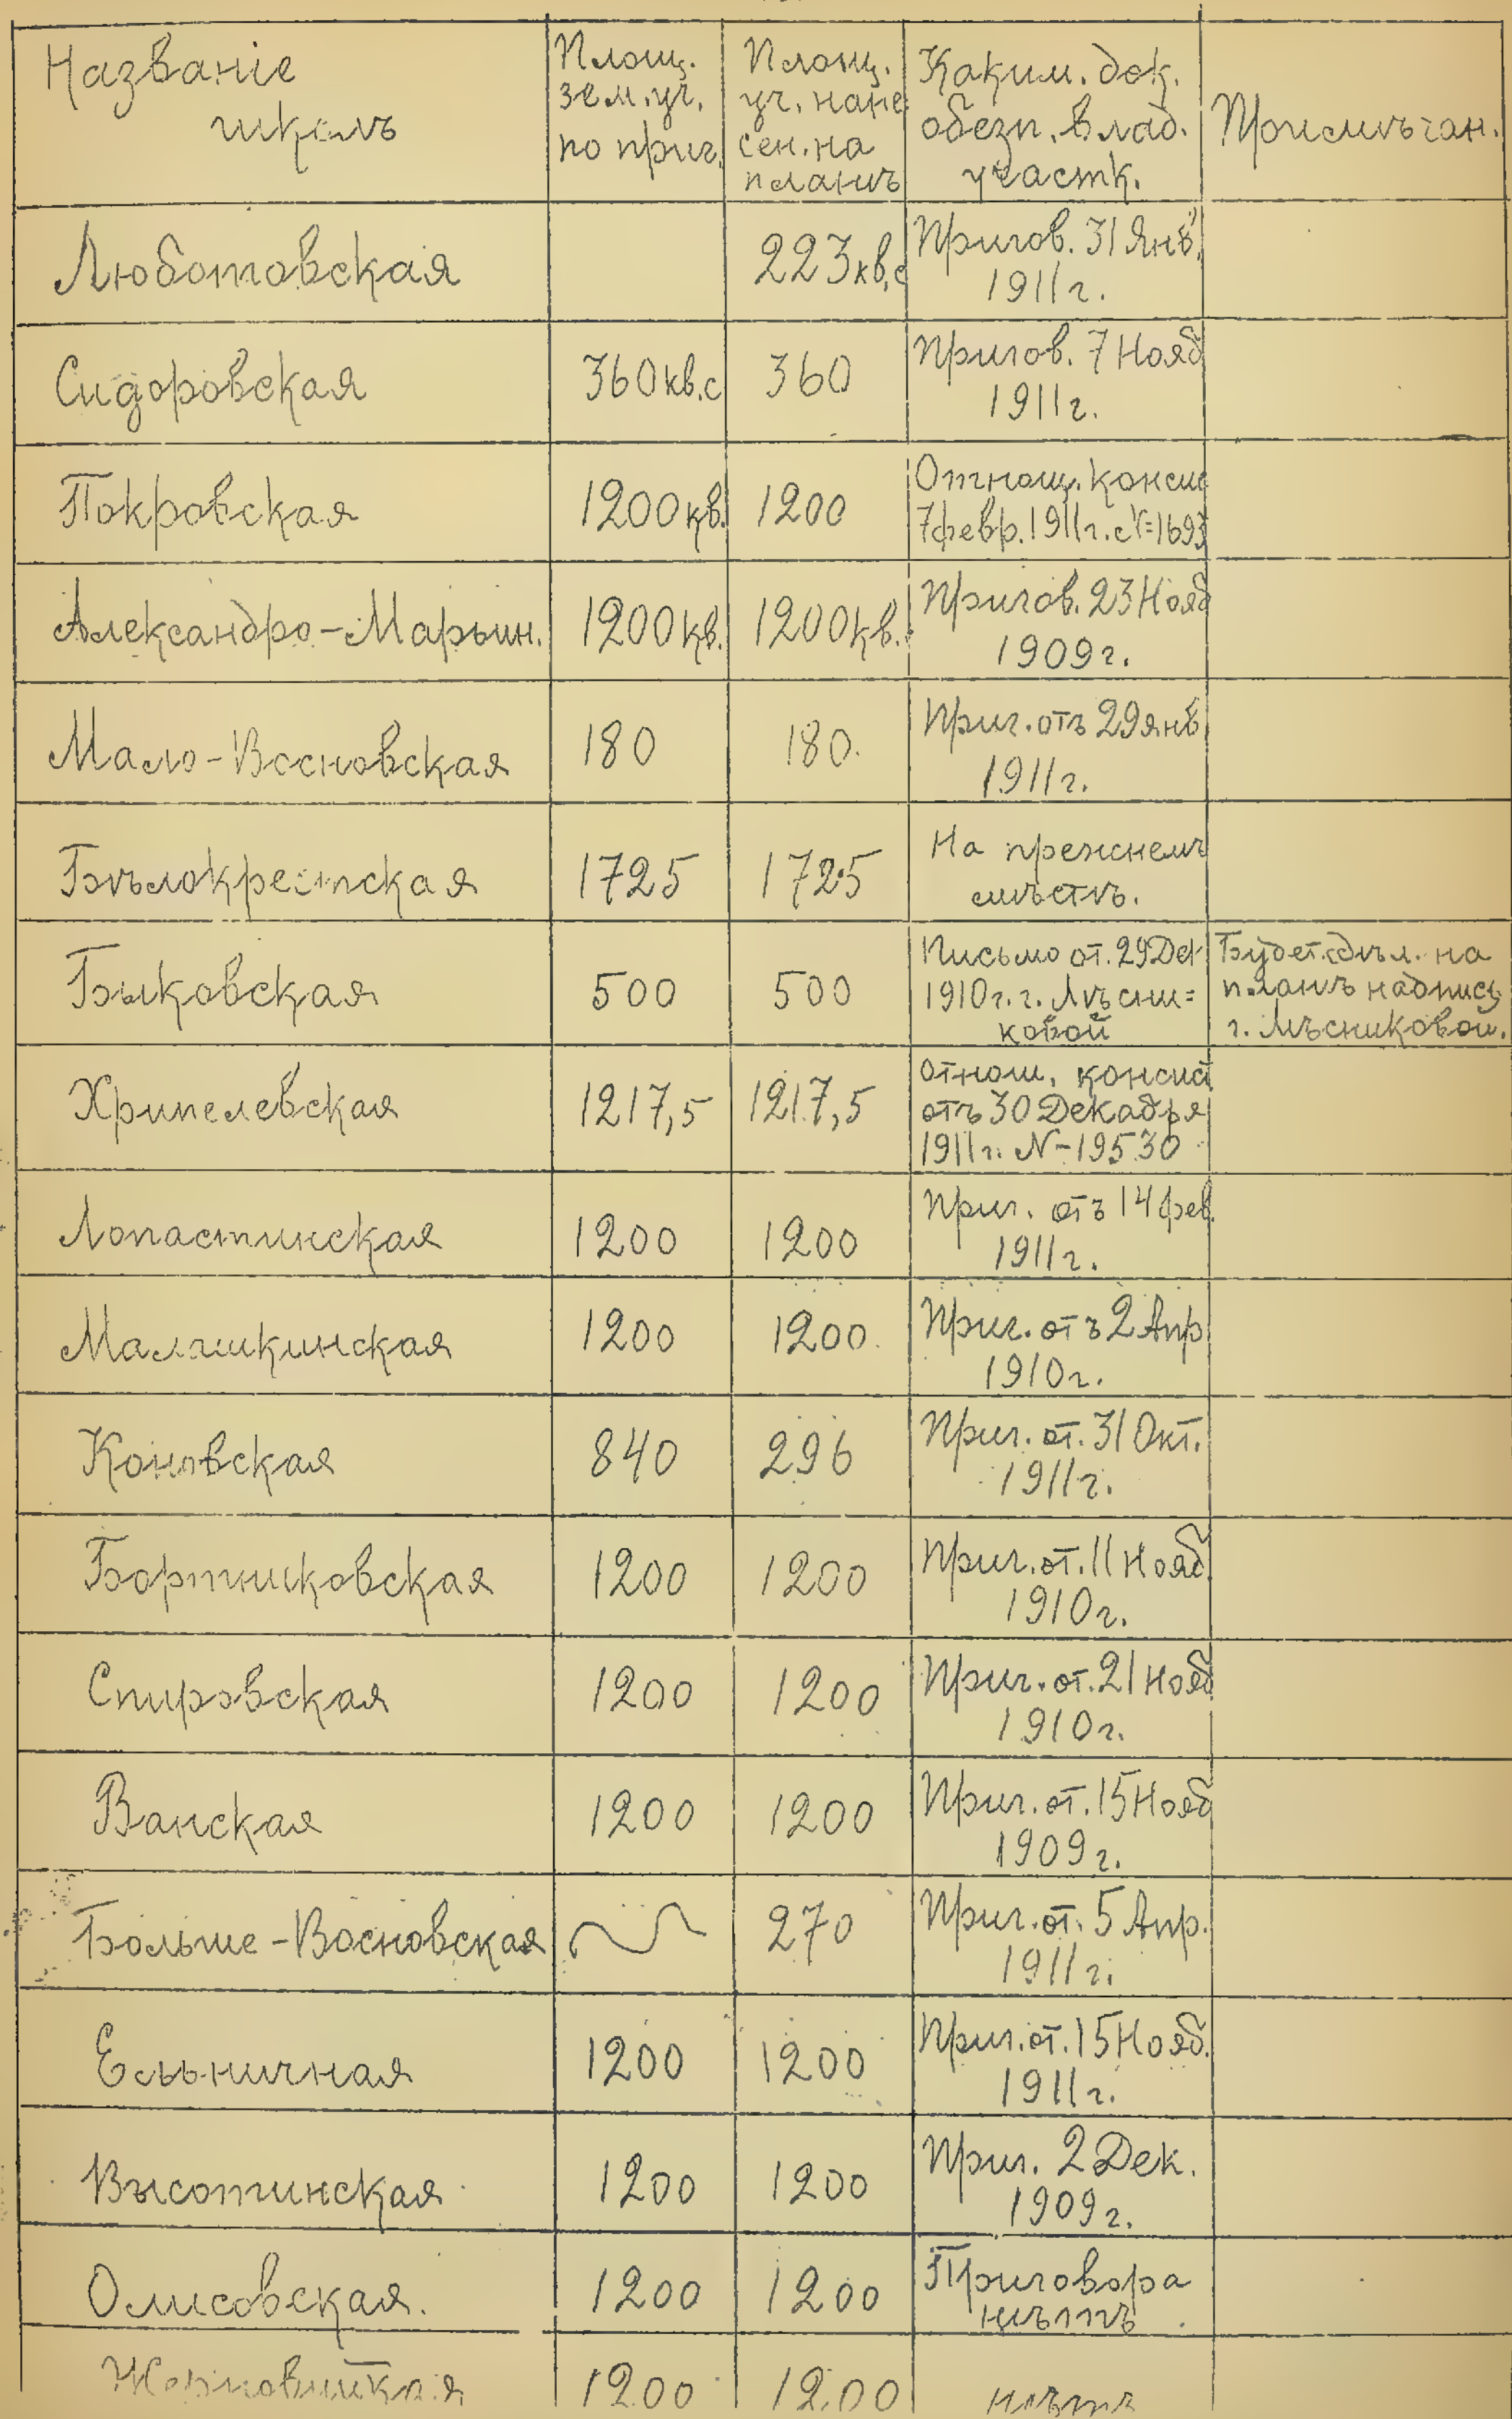 Названіе школъ
Площ. зем. уч. по приг.
Площ. уч. нане сен. на планъ
Каким. док. обезп. влад. участк.
Примѣчан.
Люботовская
223 кв. с
Пригов. 31 Янв.
1911 г.
Сидоровская
360 кв. с
360
Пригов. 7 Нояб
1911 г.
Покровская
1200 кв.
1200
Отнош. конси
7 февр. 1911 г. №=1693
Александро-Марьин.
1200 кв.
1200 кв.
Пригов. 23 Нояб
1909 г.
Мало-Восновская
180
180.
Приг. отъ 29 янв.
1911 г.
Бѣлокрестская
1725
1725
На прежнемъ
мѣстѣ.
Быковская
500
500
Письмо от. 29 Дек
1910 г. г. Лѣсни=
ковой
Будет. сдѣл. на
планѣ надпись
г. Лѣсниковой.
Хрипелевская
1217,5
1217,5
отнош. консис
отъ 30 Декабря
1911 г. №-19530
Лопастинская
1200
1200
Приг. отъ 14 фев.
1911 г.
Малашкинская
1200
1200.
Приг. отъ 2 Апр
1910 г.
840
296
Приг. от. 31 Окт.
1911 г.
Бортниковская
1200
1200
Приг. от. 11 Нояб.
1910 г.
Спировская
1200
1200
Приг. от. 21 Нояб
1910 г.
Ванская
1200
1200
Приг. от. 15 Нояб
1909 г.
Больше-Восновская
270
Приг. от. 5 Апр.
1911 г.
Ельничная
1200
1200
Приг. от. 15 Нояб.
1911 г.
Высотинская
1200
1200
Приг. 2 Дек.
1909 г.
Олисовская.
1200
1200
Приговора
нѣтъ
1200
1200
нѣтъ